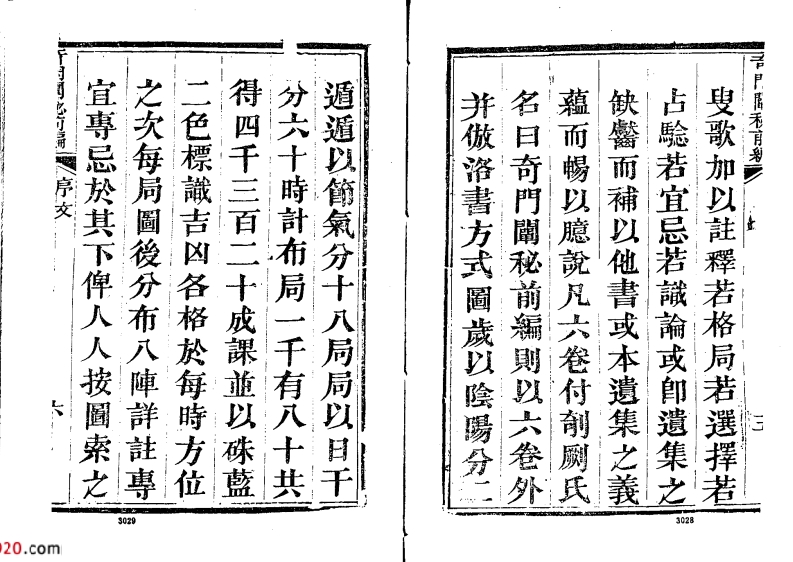 奇門闡秘前編
叟歌加以註釋若格局若選擇若
占驗若宜忌若議論或卽遺集之
缺齾而補以他書或本遺集之義
蘊而暢以臆說凡六卷付剞劂氏
名曰奇門闡秘前編則以六卷外
并倣洛書方式圖歲以陰陽分二
3028
遁遁以節氣分十八局局以日干
分六十時計布局一千有八十共
得四千三百二十成課並以硃藍
二色標識吉凶各格於每時方位
之次每局圖後分布八陣詳註專
宜專忌於其下俾人人按圖索之
奇門闡秘前編
序文
六
3029
020.com